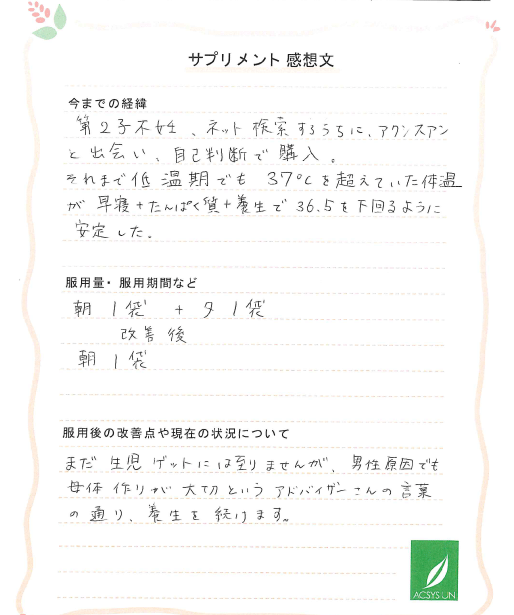 サプリメント 感想文
今までの経緯
第2子不妊、ネット検索するうちに、アクシスアン
と出会い、自己判断で購入。
それまで低温期でも37℃を超えていた体温
が早寝+たんぱく質+養生で36.5を下回るように
安定した。
服用量・服用期間など
朝 1袋 + 夕 1袋
改善後
朝 1袋
服用後の改善点や現在の状況について
まだ生児ゲットには至りませんが、男性原因でも
母体作りが大切というアドバイザーさんの言葉
の通り、養生を続けます。
ACSYSUN